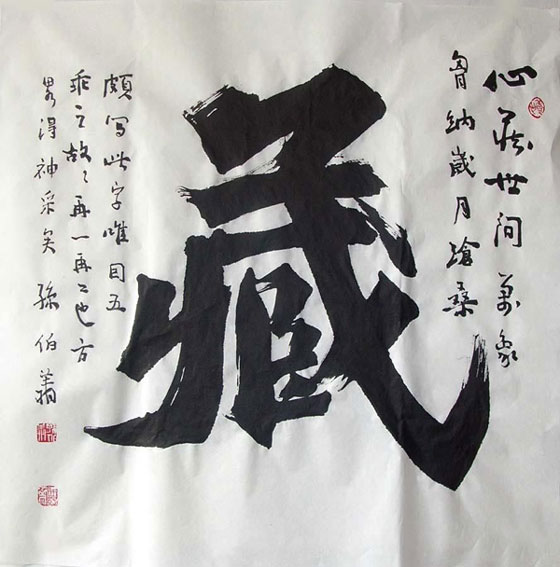 心藏世间万象
胸纳岁月沧桑
藏
颇写此字唯因五
乖之故故再一再二也方
略得神采矣 孙伯翔